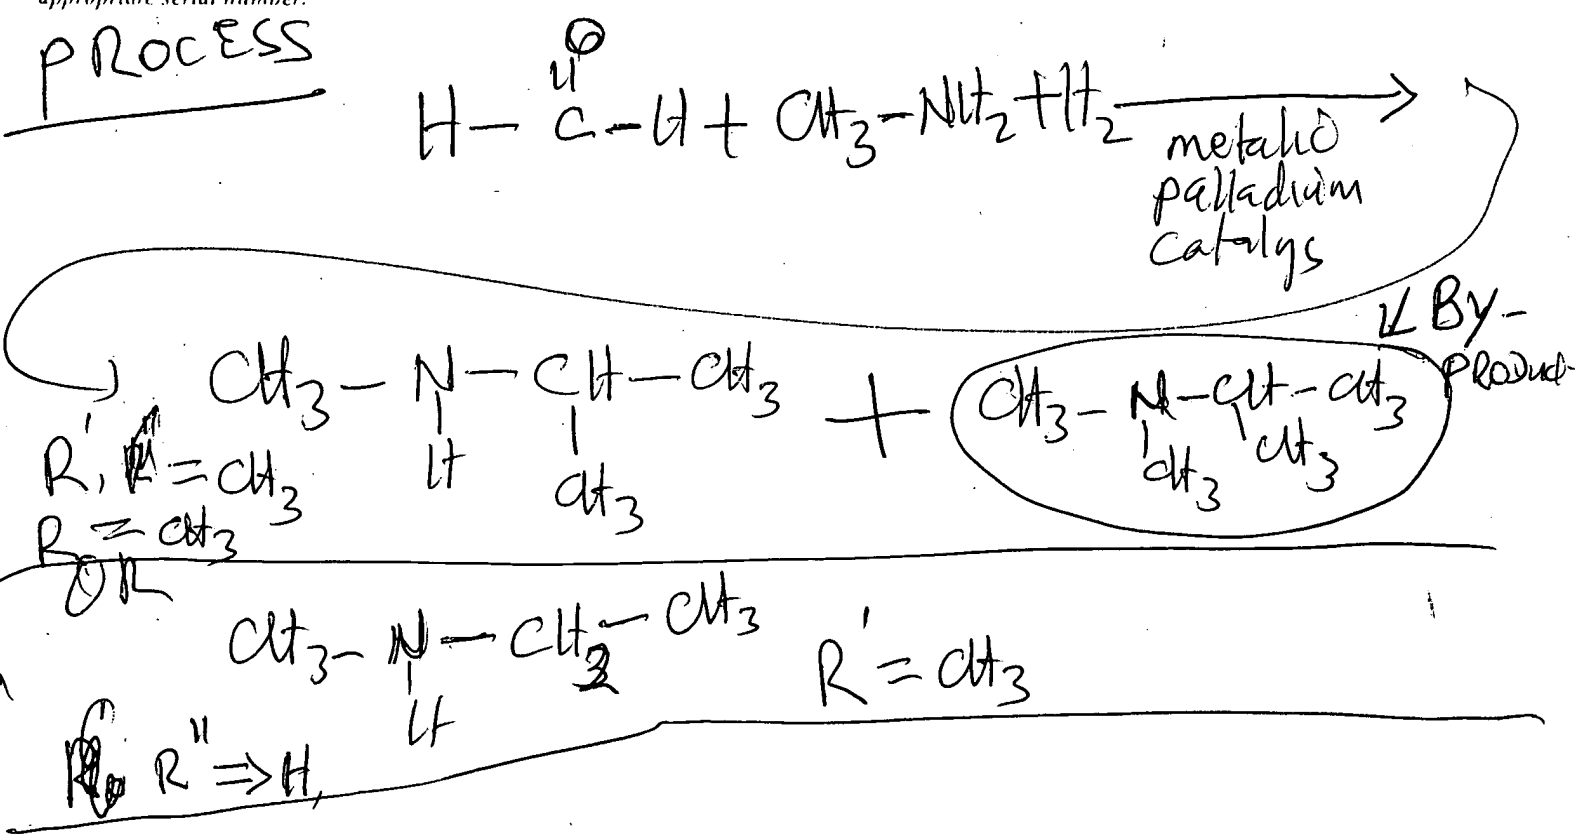 appropriate serial number.
PROCESS
O
H — C — H + CH3 – NH2 + H2
metallic
palladium
catalys
CH3 — N — CH — CH3 + CH3 – N – CH – CH3
By-
Product
H CH3 CH3 CH3
R', R'' = CH3
R = CH3
OR
CH3 – N — CH2 – CH3
H
R' = CH3
R'' ⇒ H,